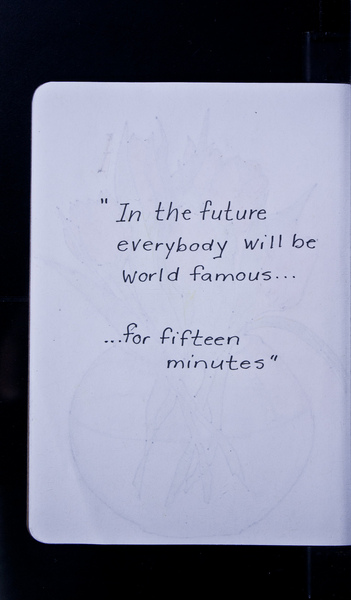 " In the future
everybody will be
world famous...
...for fifteen
minutes"